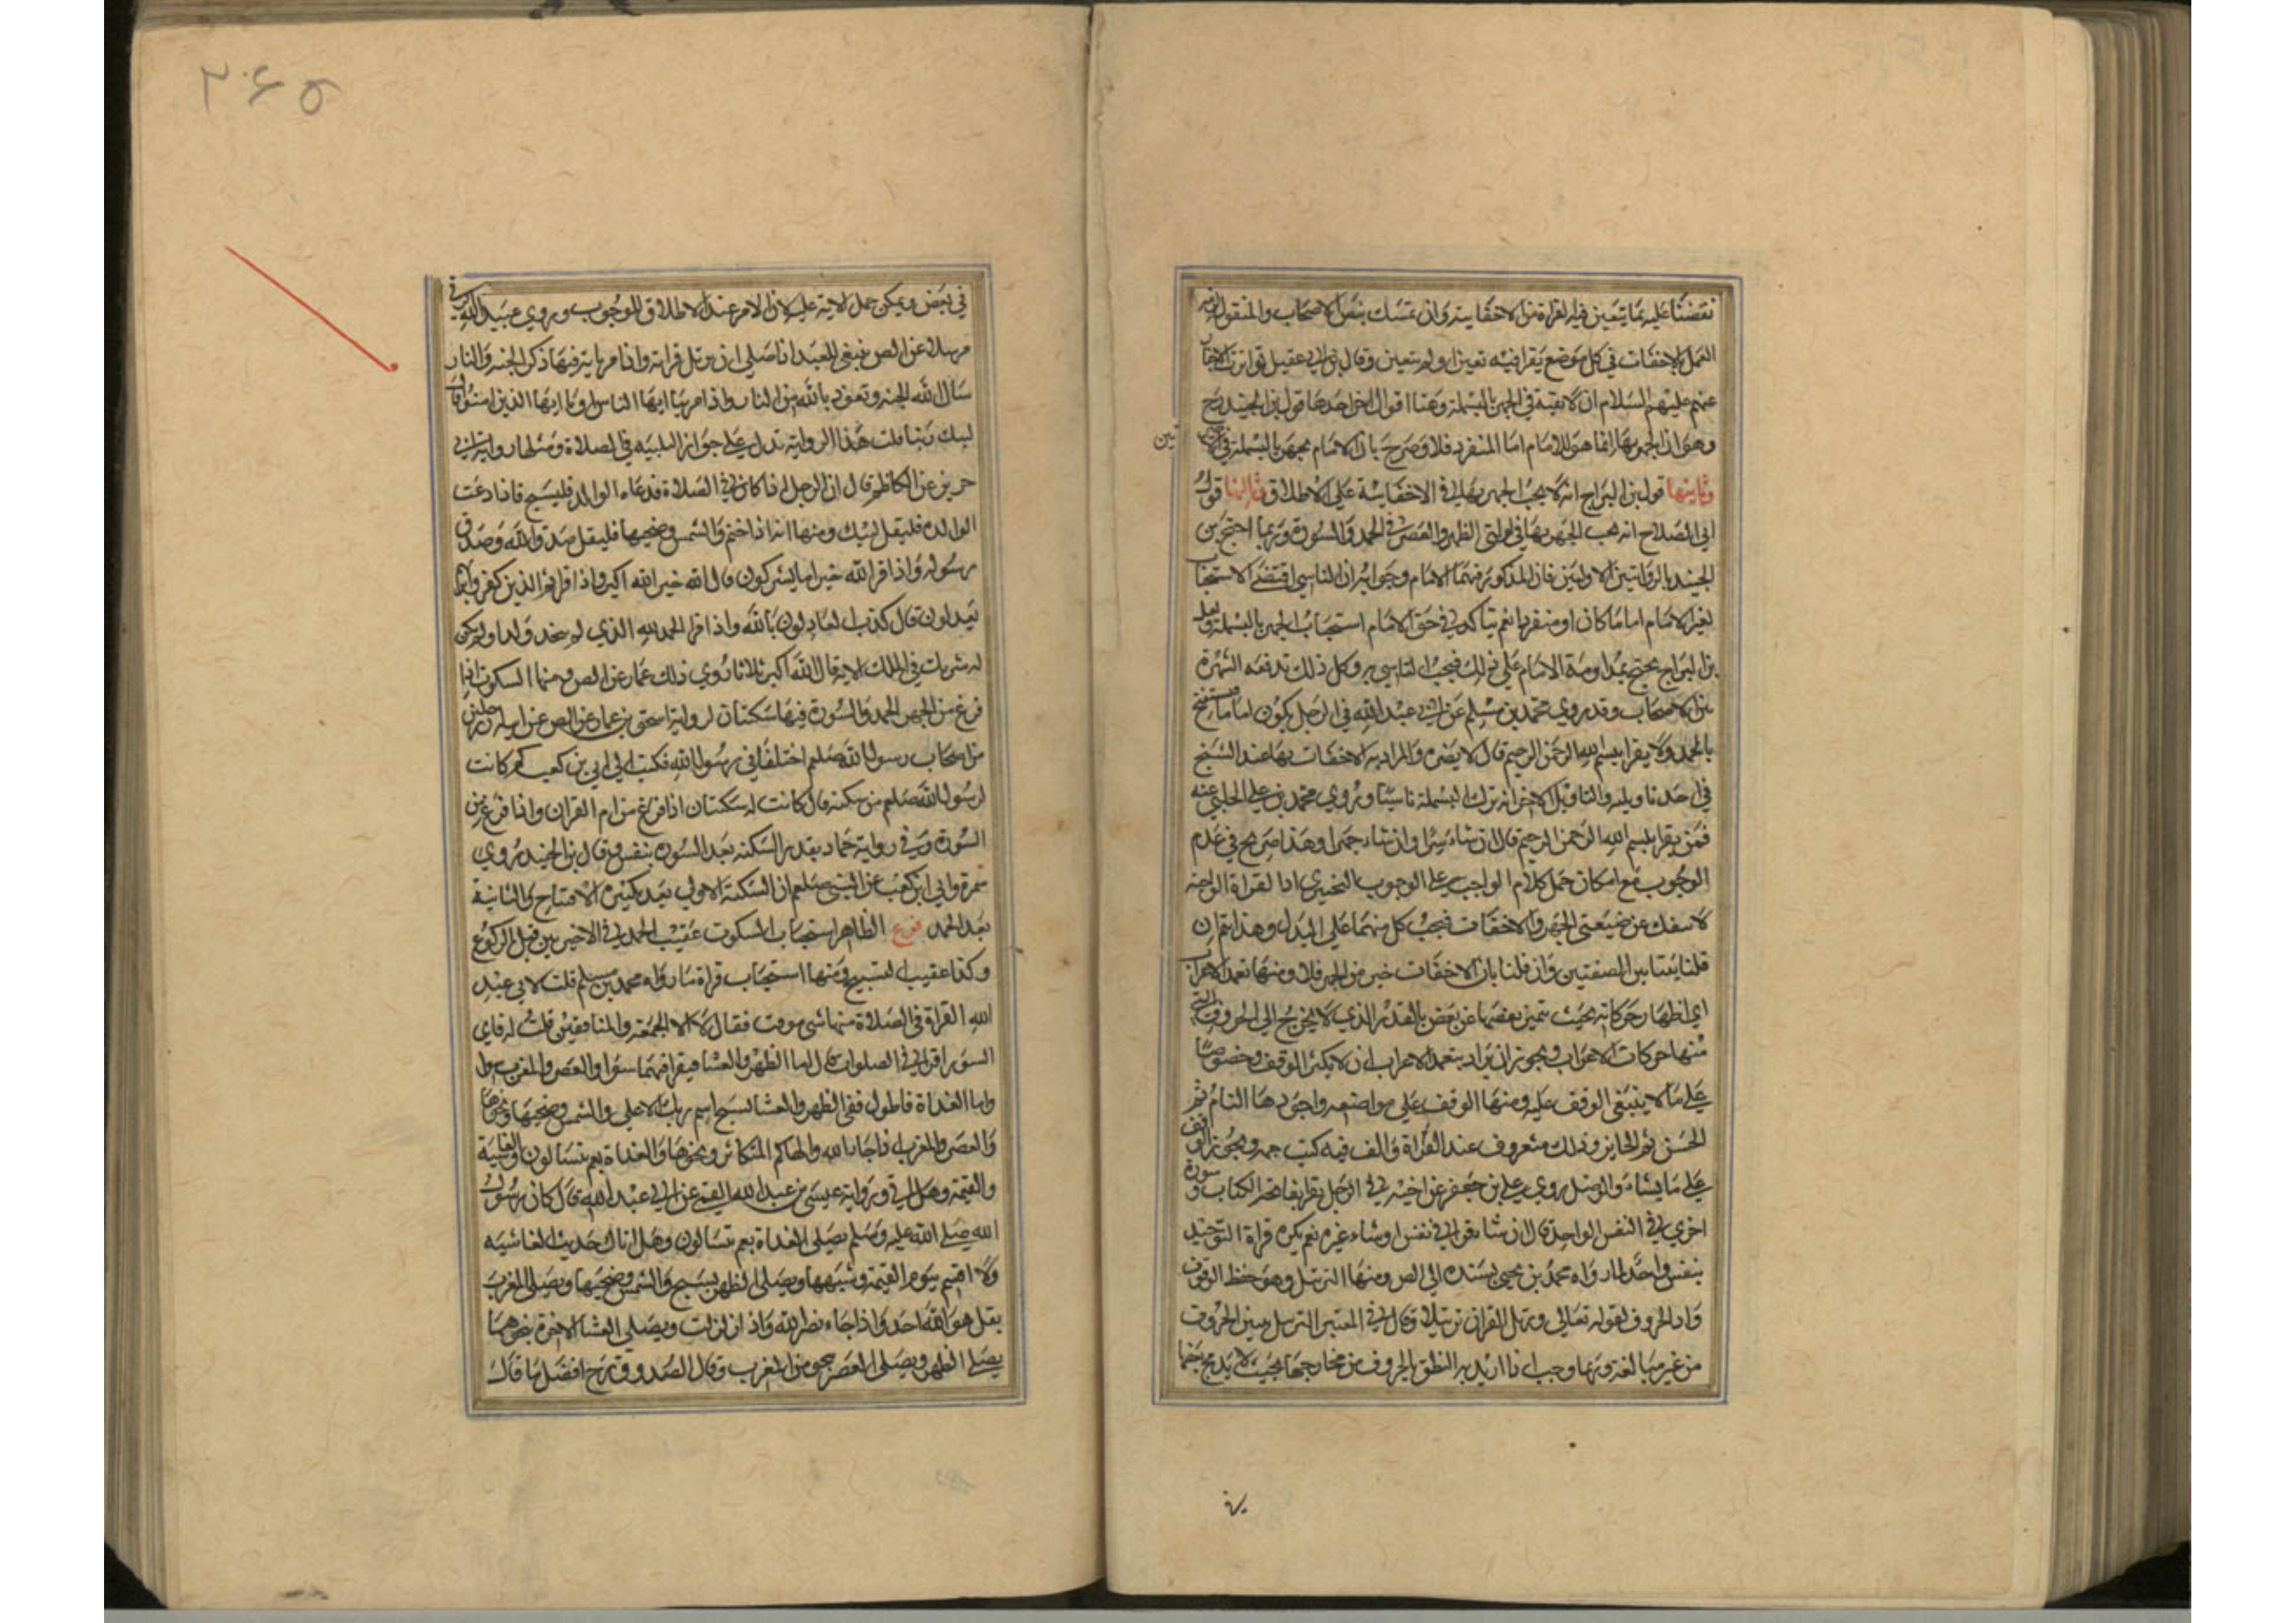 نقضنا عليه بما يتعين فيه القراءة من الاخفاتية وان تمسك بنص الاصحاب والمنقول
العمل بالاخفات في كل موضع يقرا فيه تعين او لم يتعين وقال ابن ابي عقيل تواترت الاخبار
عنهم عليهم السلام ان لا تقية في الجهر بالبسملة وهنا اقوال اخر احدها قول ابن الجنيد رح
وهو ان الجهر بها انما هو للامام اما المنفرد فلا وصرح بان الامام يجهر بالبسملة في
تين
وثانيها قول ابن البراج انه يجب الجهر بها في الاخفاتية على الاطلاق وثالثها قول
ابي الصلاح انه يجب الجهر بها في اولتي الظهر والعصر في الحمد والسورة وربما احتج بن
الجنيد بالروايتين الاوليين فان المذكور فيهما الامام وجوابه ان التاسي اقتضى الاستحباب
لغير الامام اماما كان او منفردا نعم يتاكد في حق الامام استحباب الجهر بالبسملة ولعل
بن البراج يحتج بمداومة الامام على ذلك فيجب التاسي به وكل ذلك تدفعه الشهرة
من الاصحاب وقد روي محمد بن مسلم عن ابي عبد الله في الرجل يكون اماما يستفتح
بالحمد ولا يقرا بسم الله الرحمن الرحيم قال لا يضره والمراد به الاخفات بها عند الشيخ
في احد تاويليه والتاويل الاخر انه ترك البسملة ناسيا وروي محمد بن علي الحلبي عنه
فمن يقرا بسم الله الرحمن الرحيم قال ان شاء سرا وان شاء جهرا وهذا صريح في عدم
الوجوب مع امكان حمل كلام الواجب على الوجوب التخييري اذ القراة الواجبة
لا تنفك عن صفتي الجهر والاخفات فيجب كل منهما على البدل وهذا يتم ان
قلنا بعتابين الصفتين وان قلنا بان الاخفات خير من الجهر فلا ومنها تعمد الاعراب
اي اظهار حركاته بحيث يتميز بعضها عن بعض بالقدر الذي لا يخرج الى الحروف
منها حركات الاعراب ويجوز ان يراد بتعمد الاعراب ان لا يكثر الوقف وخصوصا
على ما لا ينبغي الوقف عليه ومنها الوقف على مواضعه واجودها التام ثم
الحسن ثم الجايز وذلك معروف عند القراة والف فيه كتب جمه ويجوز الوقف
على ما يشاء والوصل روي علي بن جعفر عن اخيه في الرجل يقرا بفاتحة الكتاب وسورة
اخري في النفس الواحد قال ان شاء قرا في نفس او شاء غيره نعم يكره قراة التوحيد
بنفس واحد لما رواه محمد بن يحيى بسنده الى الص ومنها الترتيل وهو حفظ الوقوف
واد الحروف لقوله تعالى ورتل القران ترتيلا وقال في المعتبر الترسل مبين الحروف
من غير مبالغة وربما وجب اذا اريد به النطق بالحروف من مخارجها بحيث لا يدمج بعضها
٣٠٤٥
في بعض ويمكن حمل الاية عليه لان الامر عند الاطلاق للوجوب وروي عبيد الله البرقي
مرسلا عن الص ينبغي للعبد اذا صلى ان يرتل قراته واذا مر باية فيها ذكر الجنه والنار
سال الله الجنه وتعوذ بالله من النار واذا مر بيا ايها الناس او يا ايها الذين امنوا قال
لبيك ربنا قلت هذا الرواية تدل على جواز التلبيه في الصلاة ومثلها رواية ابي
حريز عن الكاظم قال ان الرجل اذا كان في الصلاة فدعاه الوالد فليسبح فاذا دعت
الوالده فليقل لبيك ومنها انه اذا ختم والشمس وضحيها فليقل صدق الله وصدق
رسوله واذا قرا الله خير اما يشركون قال الله خير الله اكبر واذا قرا ثم الذين كفروا بربهم
يعدلون قال كذب العادلون بالله واذا قرا الحمد لله الذي لم يتخذ ولدا ولم يكن
له شريك في الملك الاية قال الله اكبر ثلاثا روي ذلك عمار عن الص ومنها السكوت اذا
فرغ من الجهر الحمد والسورة فيها سكتتان لرواية اسحق بن عمار عن الص عن ابيه ان رجلين
من اصحاب رسول الله صلعم اختلفا في رسول الله فكتب الى ابي بن كعب كم كانت
لرسول الله صلعم من سكته قال كانت له سكتتان اذا فرغ من ام القران واذا فرغ من
السورة وفي رواية حماد بقدر السكته بعد السوره بنفس وقال بن الجنيد روي
سمرة وابي ابن كعب عن النبي صلعم ان السكتة الاولى بعد تكبيرة الافتتاح والثانية
بعد الحمد فرع الظاهر استحباب السكوت عقيب الحمد في الاخيرتين قبل الركوع
وكذا عقيب التسبيح ومنها استحباب قراة ما رواه محمد بن مسلم قلت لابي عبد
الله القراة في الصلاة منها شي موقت فقال لا الا الجمعة والمنافقين قلت له فاي
السور اقرا في الصلوات قال اما الظهر والعشا فيقرا فيهما سوا والعصر والمغرب سوا
واما الغداة فاطول ففي الظهر والعشا لسبح اسم ربك الاعلى والشمس وضحيها ونحوها
والعصر والمغرب اذا جاء نصر الله والهاكم التكاثر ونحوها والغداة بعم يتسالون والغاشية
والقيمة وهل اتى ورواية عيسى بن عبد الله القمي عن ابي عبد الله قال كان رسول
الله صلى الله عليه وسلم يصلى الغداة بعم يتسالون وهل اتاك حديث الغاشيه
ولا اقسم بيوم القيمة وشبهها ويصلى الظهر بسبح والشمس وضحيها ويصلى المغرب
بقل هو الله احد واذا جاء نصر الله واذا زلزلت ويصلي العشا الاخرة بنحو ما
يصلى الظهر ويصلى العصر بنحو من المغرب وقال الصدوق رح افضل ما قال